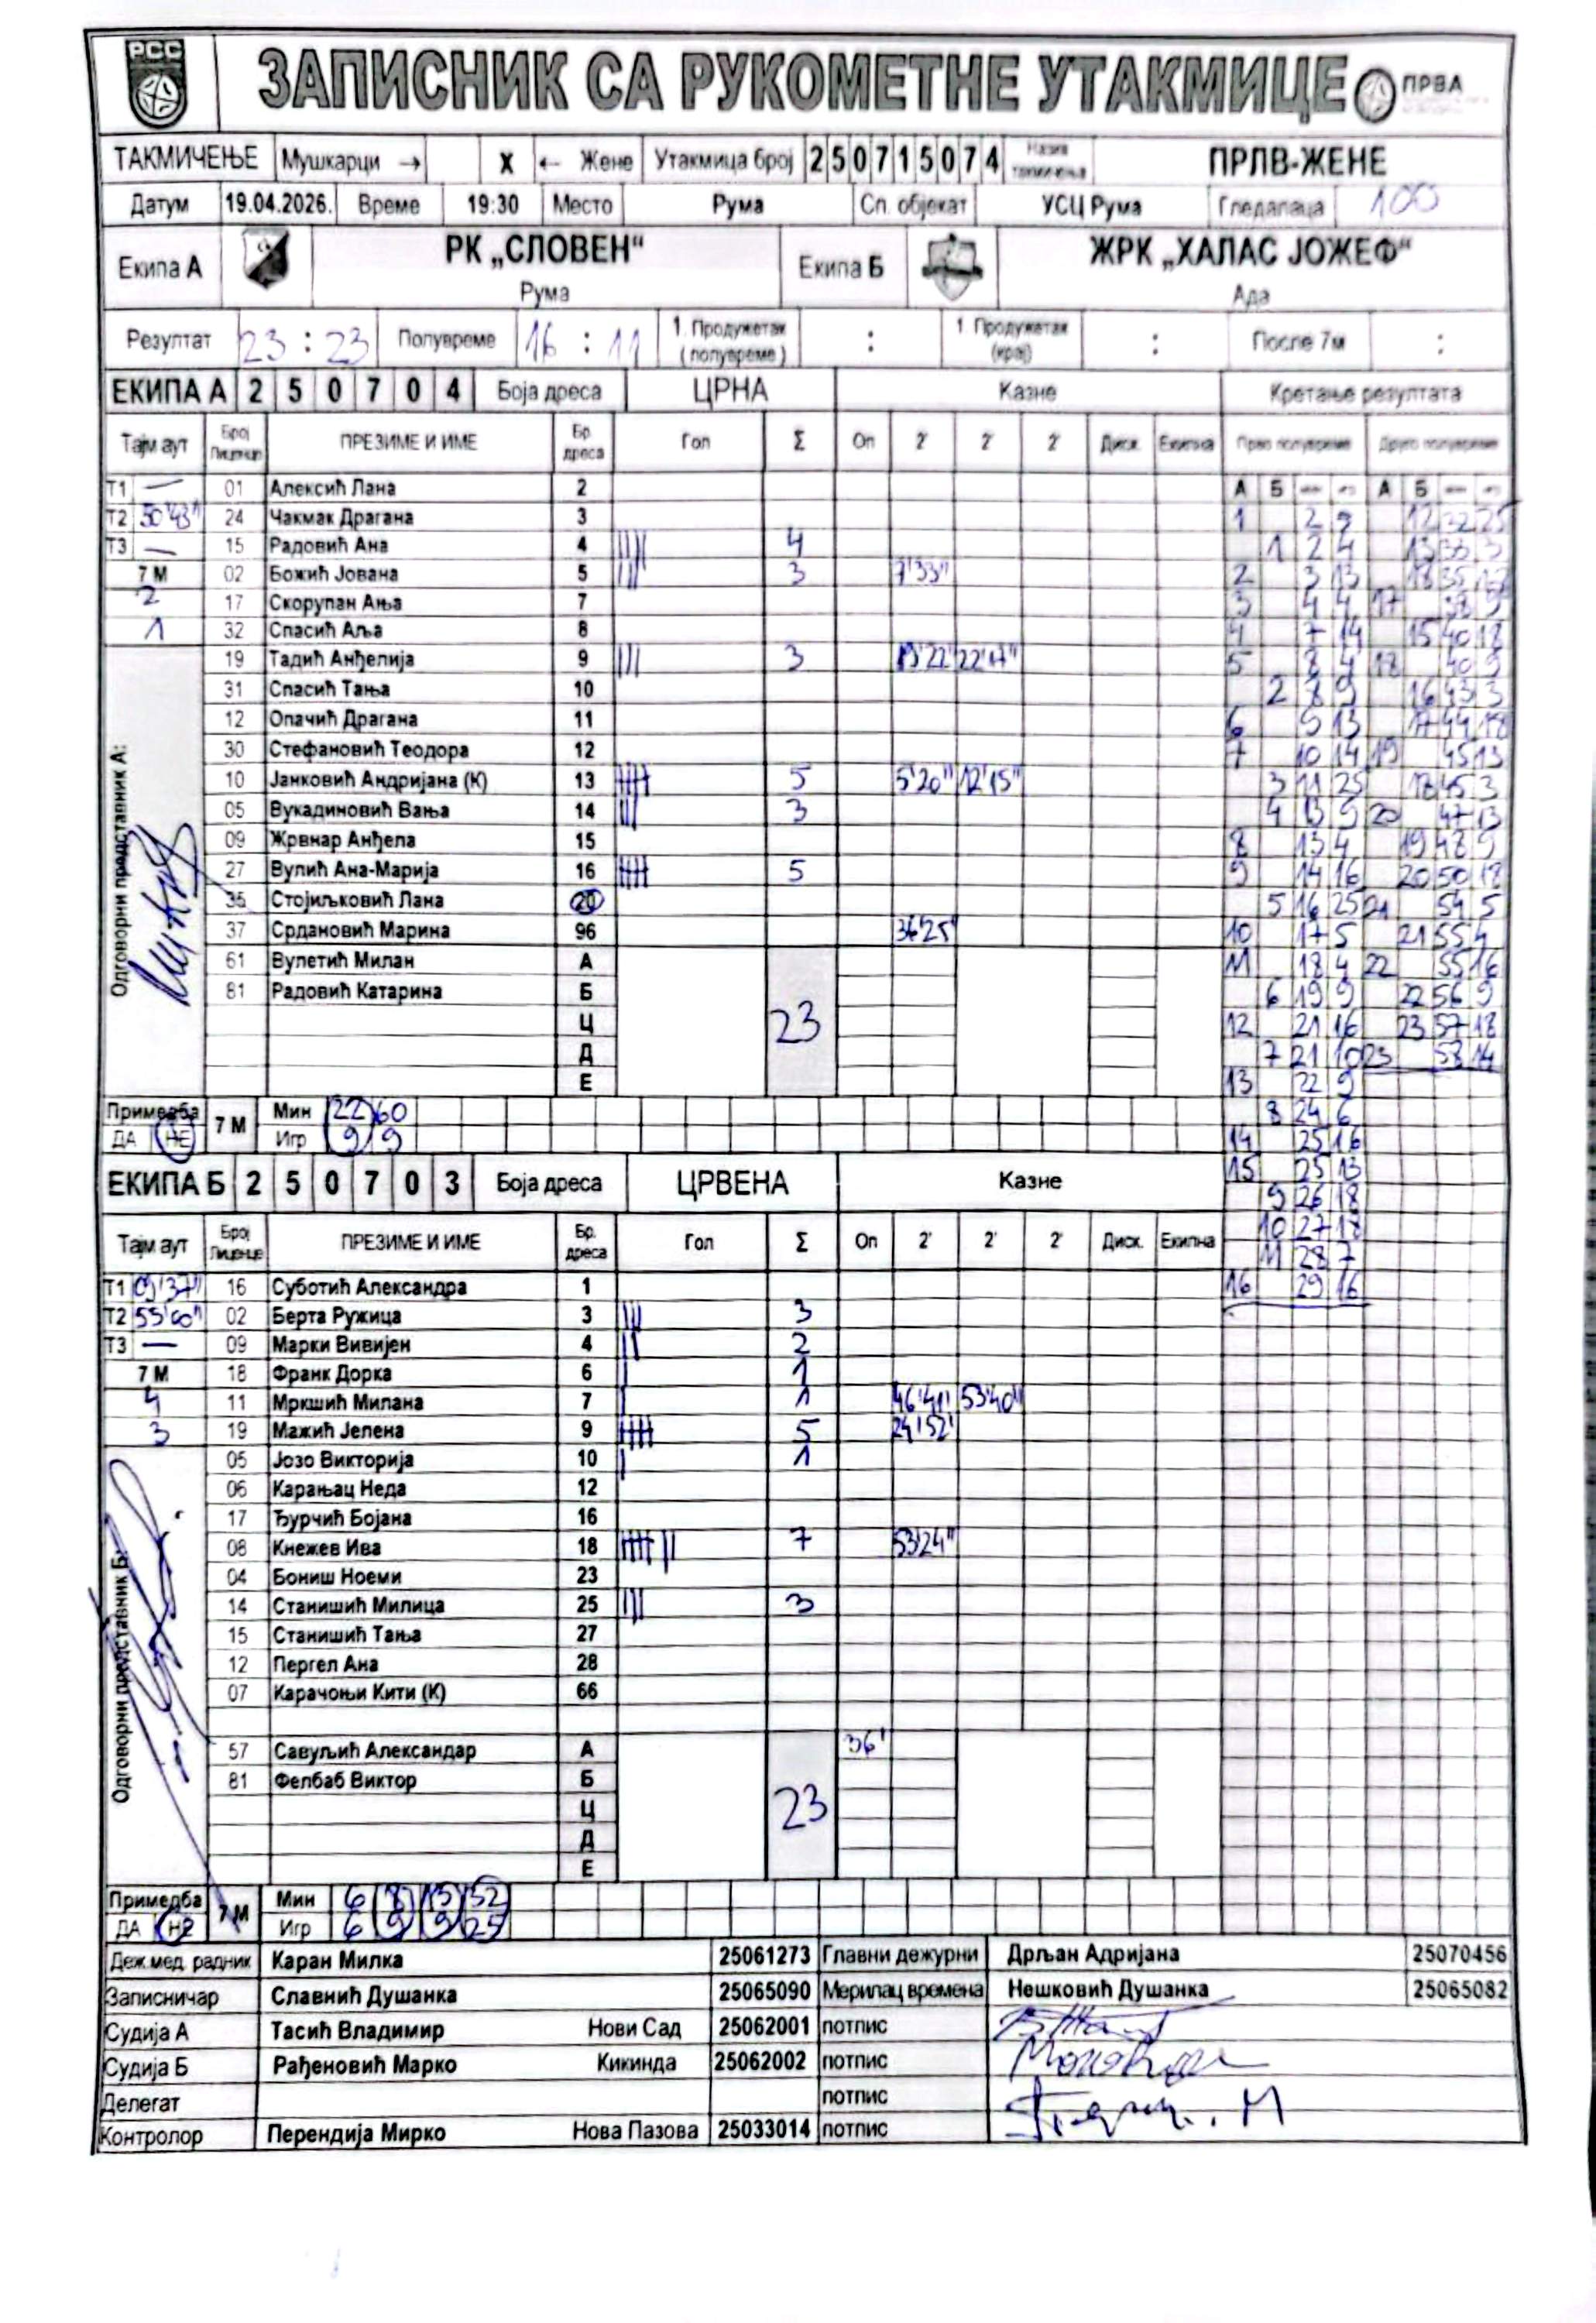 РСС
ЗАПИСНИК СА РУКОМЕТНЕ УТАКМИЦЕ ПРВА
ТАКМИЧЕЊЕ Мушкарци → X ← Жене Утакмица број 2 5 0 7 1 5 0 7 4 Назив такмичења ПРЛВ-ЖЕНЕ
Датум 19.04.2026. Време 19:30 Место Рума Сп. објекат УСЦ Рума Гледалаца 100
Екипа А РК „СЛОВЕН“ Рума Екипа Б ЖРК „ХАЛАС ЈОЖЕФ“ Ада
Резултат 23 : 23 Полувреме 16 : 11 1. Продужетак (полувреме) : 1. Продужетак (крај) : После 7м :
ЕКИПА А 2 5 0 7 0 4 Боја дреса ЦРНА Казне Кретање резултата
Тајм аут Број Лиценце ПРЕЗИМЕ И ИМЕ Бр. дреса Гол Σ Оп 2' 2' 2' Диск. Екипна Прво полувреме Друго полувреме
Т1 — 01 Алексић Лана 2 А Б А Б
Т2 50'43" 24 Чакмак Драгана 3 1 2 9 12 32 25
Т3 — 15 Радовић Ана 4 4 1 2 4 13 33 3
7 М 02 Божић Јована 5 3 7'33" 2 3 13
2 17 Скорупан Ања 7 3 4 4 17
1 32 Спасић Аља 8 4 7 14 15 40 18
19 Тадић Анђелија 9 3 19'22" 22'17" 5 8 4 18 40 9
31 Спасић Тања 10 2 8 9 16 43 3
12 Опачић Драгана 11 6 9 13 17 44 18
30 Стефановић Теодора 12 7 10 14 19 45 13
10 Јанковић Андријана (К) 13 5 5'20" 12'15" 3 11 25 18 45 3
05 Вукадиновић Вања 14 3 4 13 9 20 47 13
09 Жрвнар Анђела 15 8 13 4 19 48 9
27 Вулић Ана-Марија 16 5 9 14 16 20 50 18
35 Стојиљковић Лана 20 5 16 25 21 54 5
37 Срдановић Марина 96 36'25" 10 17 5 21 55 4
61 Вулетић Милан А 11 18 4 22 55 16
81 Радовић Катарина Б 6 19 9 22 56 9
Ц 23 12 21 16 23 57 18
Д 7 21 10 23 58 14
Е 13 22 9
Одговорни представник А:
Примедба ДА НЕ 7 М Мин 22 60 8 24 6
Игр 9 9 14 25 16
ЕКИПА Б 2 5 0 7 0 3 Боја дреса ЦРВЕНА Казне 15 25 13
9 26 18
Тајм аут Број Лиценце ПРЕЗИМЕ И ИМЕ Бр. дреса Гол Σ Оп 2' 2' 2' Диск. Екипна 10 27 18
11 28 7
Т1 09'37" 16 Суботић Александра 1 16 29 16
Т2 55'00" 02 Берта Ружица 3 3
Т3 — 09 Марки Вивијен 4 2
7 М 18 Франк Дорка 6 1
4 11 Мркшић Милана 7 1 46'41" 53'40"
3 19 Мажић Јелена 9 5 24'52"
05 Јозо Викторија 10 1
06 Карањац Неда 12
17 Ђурчић Бојана 16
08 Кнежев Ива 18 7 53'24"
04 Бониш Ноеми 23
14 Станишић Милица 25 3
15 Станишић Тања 27
12 Пергел Ана 28
07 Карачоњи Кити (К) 66
57 Савуљић Александар А 36'
81 Фелбаб Виктор Б
Ц 23
Д
Е
Одговорни представник Б:
Примедба ДА НЕ 7 М Мин 6 8 13 32
Игр 6 9 9 25
Деж.мед. радник Каран Милка 25061273 Главни дежурни Дрљан Адријана 25070456
Записничар Славнић Душанка 25065090 Мерилац времена Нешковић Душанка 25065082
Судија А Тасић Владимир Нови Сад 25062001 потпис
Судија Б Рађеновић Марко Кикинда 25062002 потпис
Делегат потпис
Контролор Перендија Мирко Нова Пазова 25033014 потпис